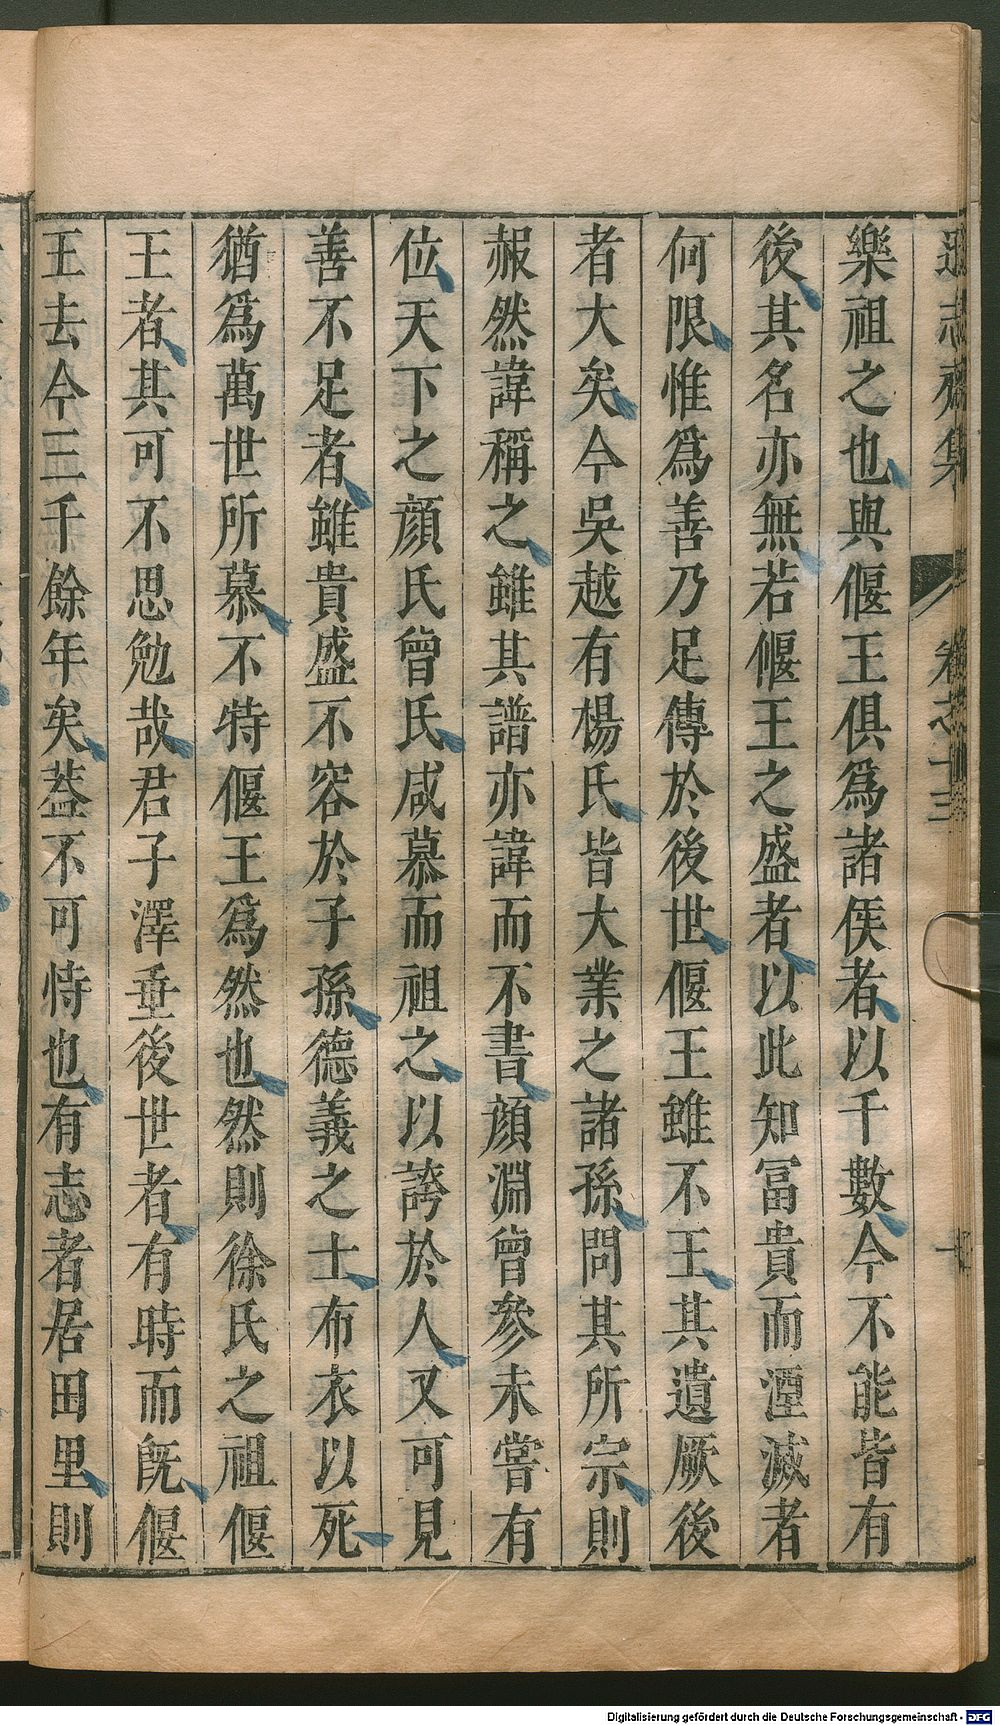 遜志齋集　卷之十三
樂祖之也與偃王俱爲諸侯者以千數今不能皆有
後其名亦無若偃王之盛者以此知冨貴而湮滅者
何限惟爲善乃足傳於後世偃王雖不王其遺厥後
者大矣今吳越有楊氏皆大業之諸孫問其所宗則
赧然諱稱之雖其譜亦諱而不書顔淵曾參未嘗有
位天下之顔氏曾氏咸慕而祖之以誇於人又可見
善不足者雖貴盛不容於子孫德義之士布衣以死
猶爲萬世所慕不特偃王爲然也然則徐氏之祖偃
王者其可不思勉哉君子澤垂後世者有時而旣偃
王去今三千餘年矣葢不可恃也有志者居田里則
Digitalisierung gefördert durch die Deutsche Forschungsgemeinschaft - DFG